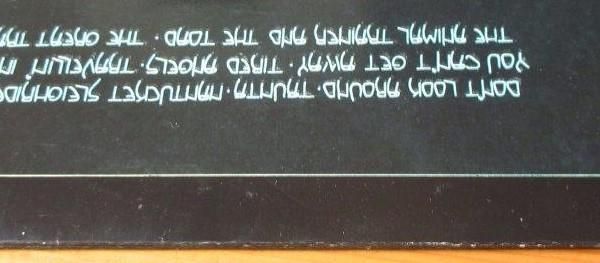 DON'T LOOK AROUND · TAUNTA · NANTUCKET SLEIGHRIDE
YOU CAN'T GET AWAY · TIRED ANGELS · TRAVELLIN' IN
THE ANIMAL TRAINER AND THE TOAD · THE GREAT TRA